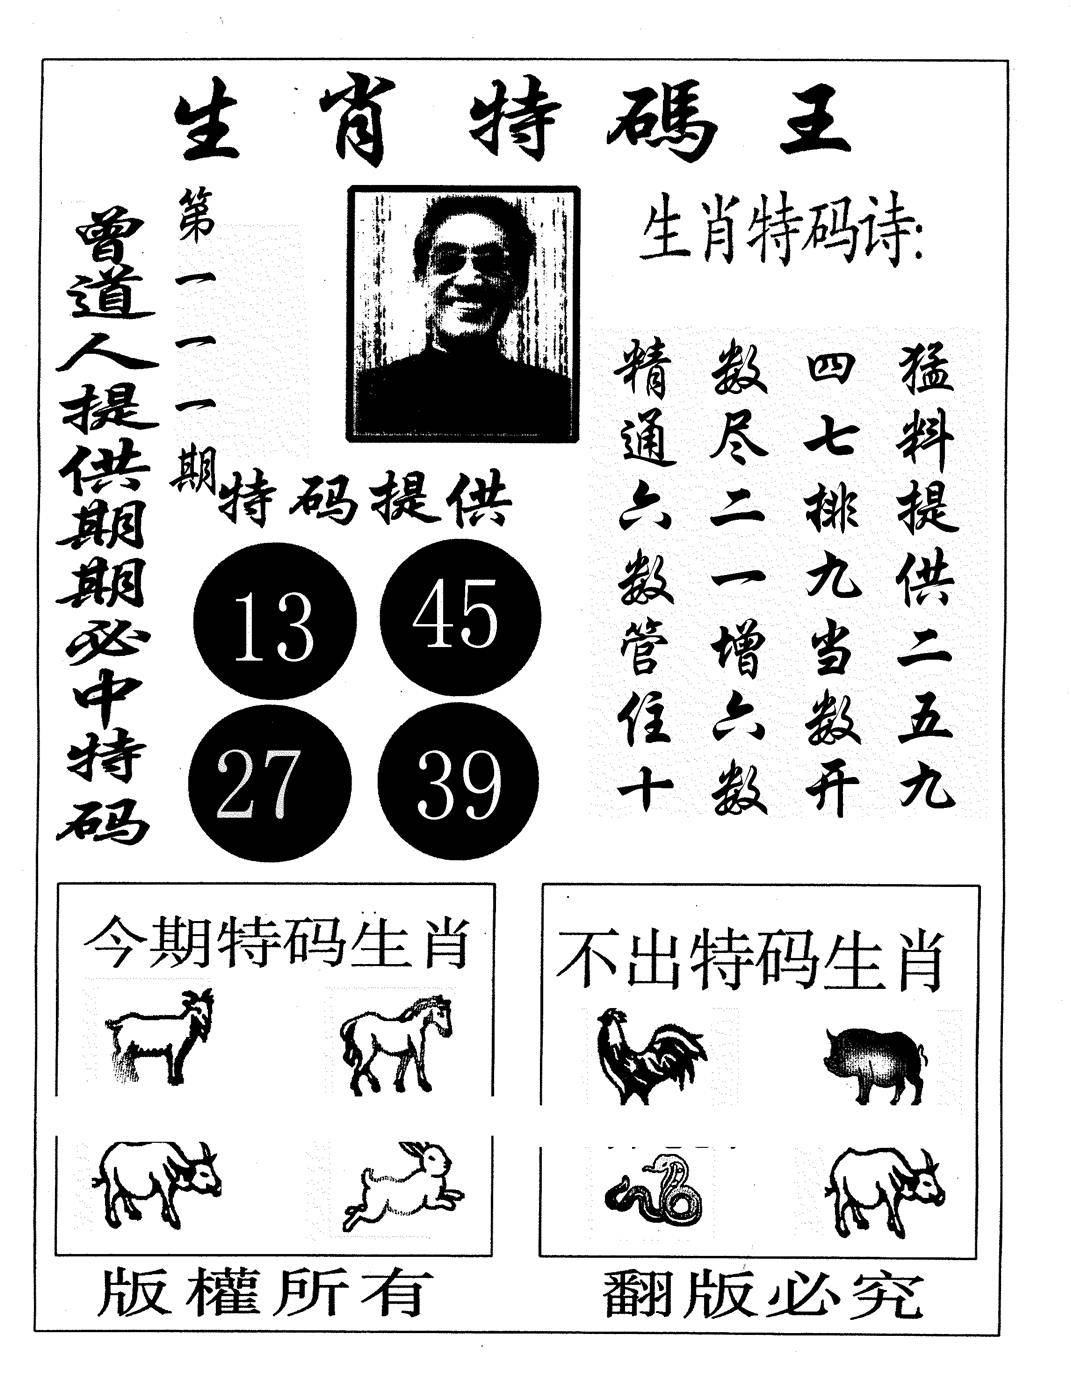 生肖特碼王
曾道人提供期期必中特码
第一一一期
生肖特码诗:
猛料提供二五九
四七排九当数开
数尽二一增六数
精通六数管住十
特码提供
13 45
27 39
今期特码生肖
不出特码生肖
版權所有
翻版必究